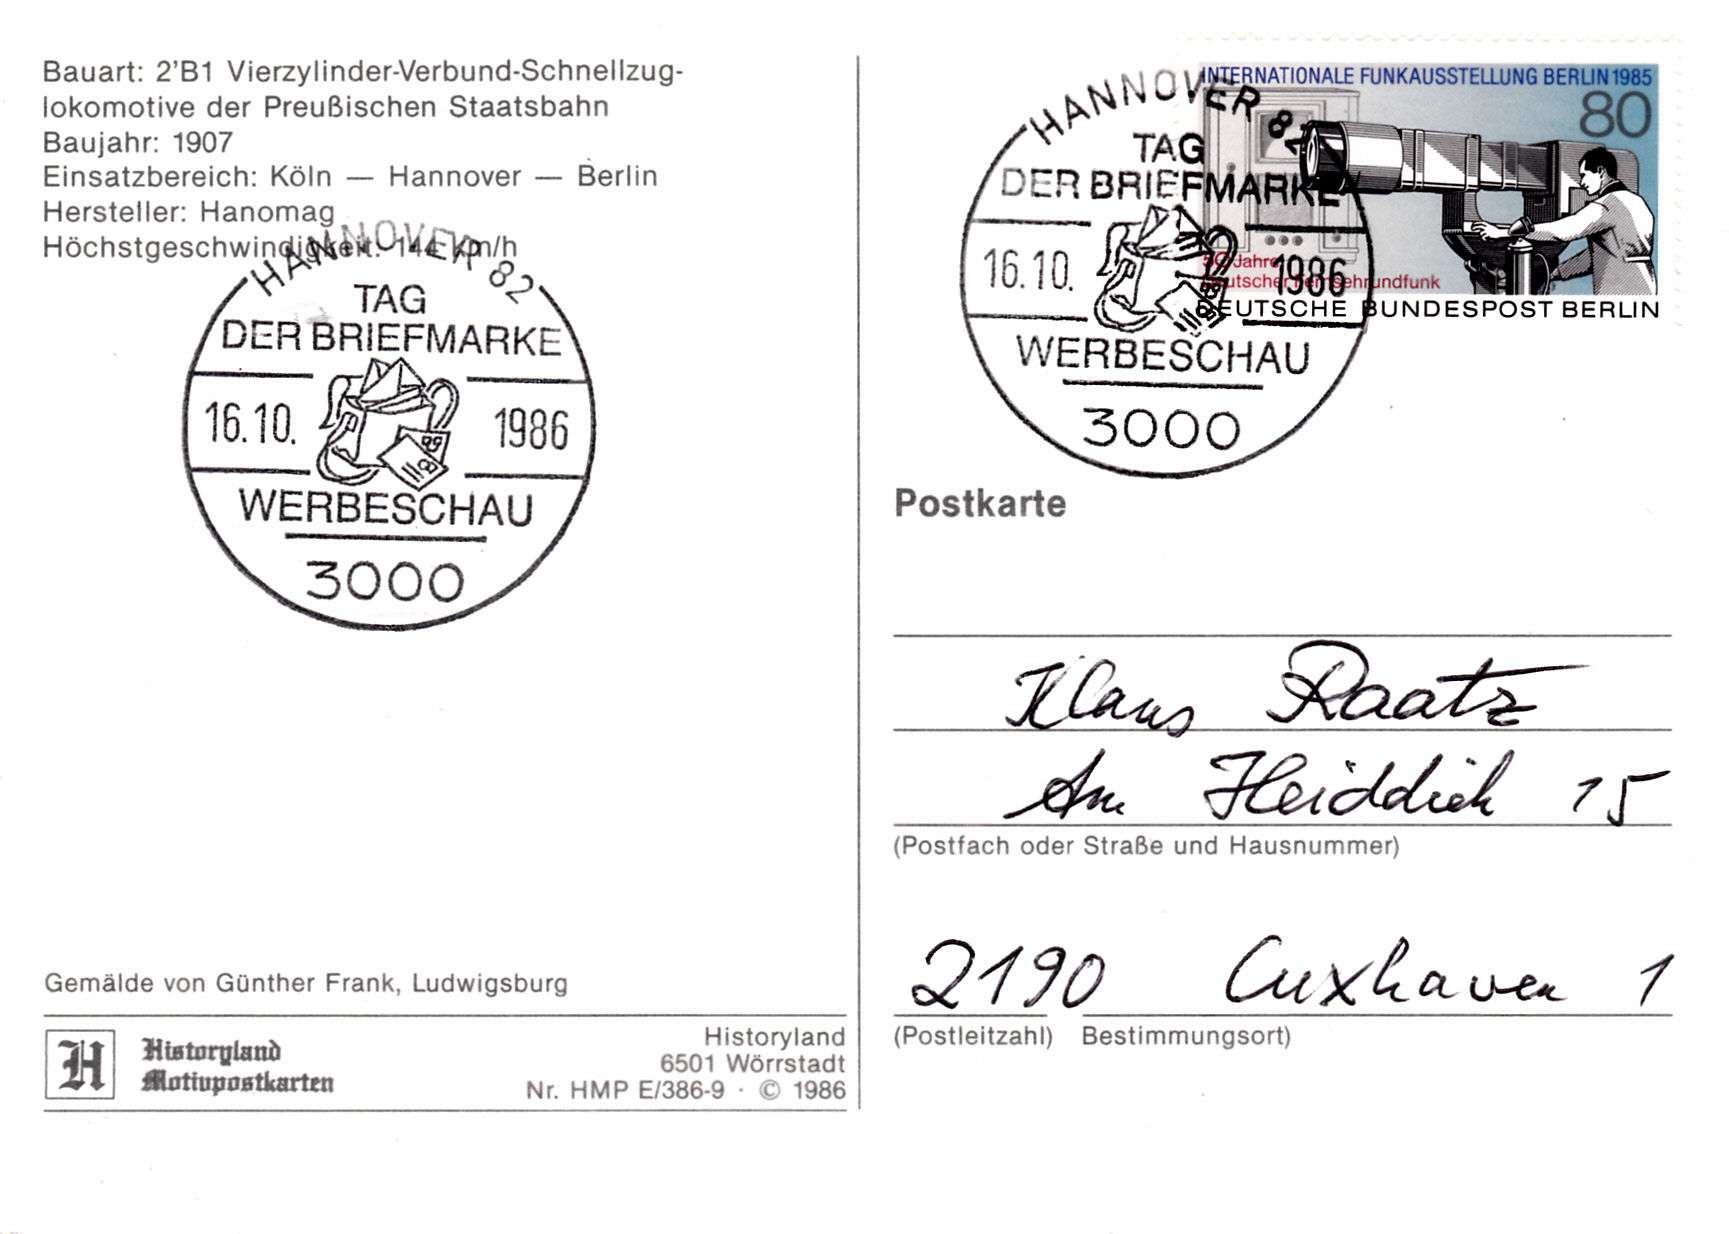 Bauart: 2'B1 Vierzylinder-Verbund-Schnellzug-
lokomotive der Preußischen Staatsbahn
Baujahr: 1907
Einsatzbereich: Köln — Hannover — Berlin
Hersteller: Hanomag
Höchstgeschwindigkeit: 144 km/h
HANNOVER 82
TAG
DER BRIEFMARKE
16.10. 1986
WERBESCHAU
3000
Gemälde von Günther Frank, Ludwigsburg
H
Historyland
Motivpostkarten
Historyland
6501 Wörrstadt
Nr. HMP E/386-9 · © 1986
INTERNATIONALE FUNKAUSSTELLUNG BERLIN 1985
80
50 Jahre
Deutscher Fernsehrundfunk
DEUTSCHE BUNDESPOST BERLIN
HANNOVER 82
TAG
DER BRIEFMARKE
16.10. 1986
WERBESCHAU
3000
Postkarte
Klaus Raatz
Am Heiddiek 15
(Postfach oder Straße und Hausnummer)
2190 Cuxhaven 1
(Postleitzahl) Bestimmungsort)